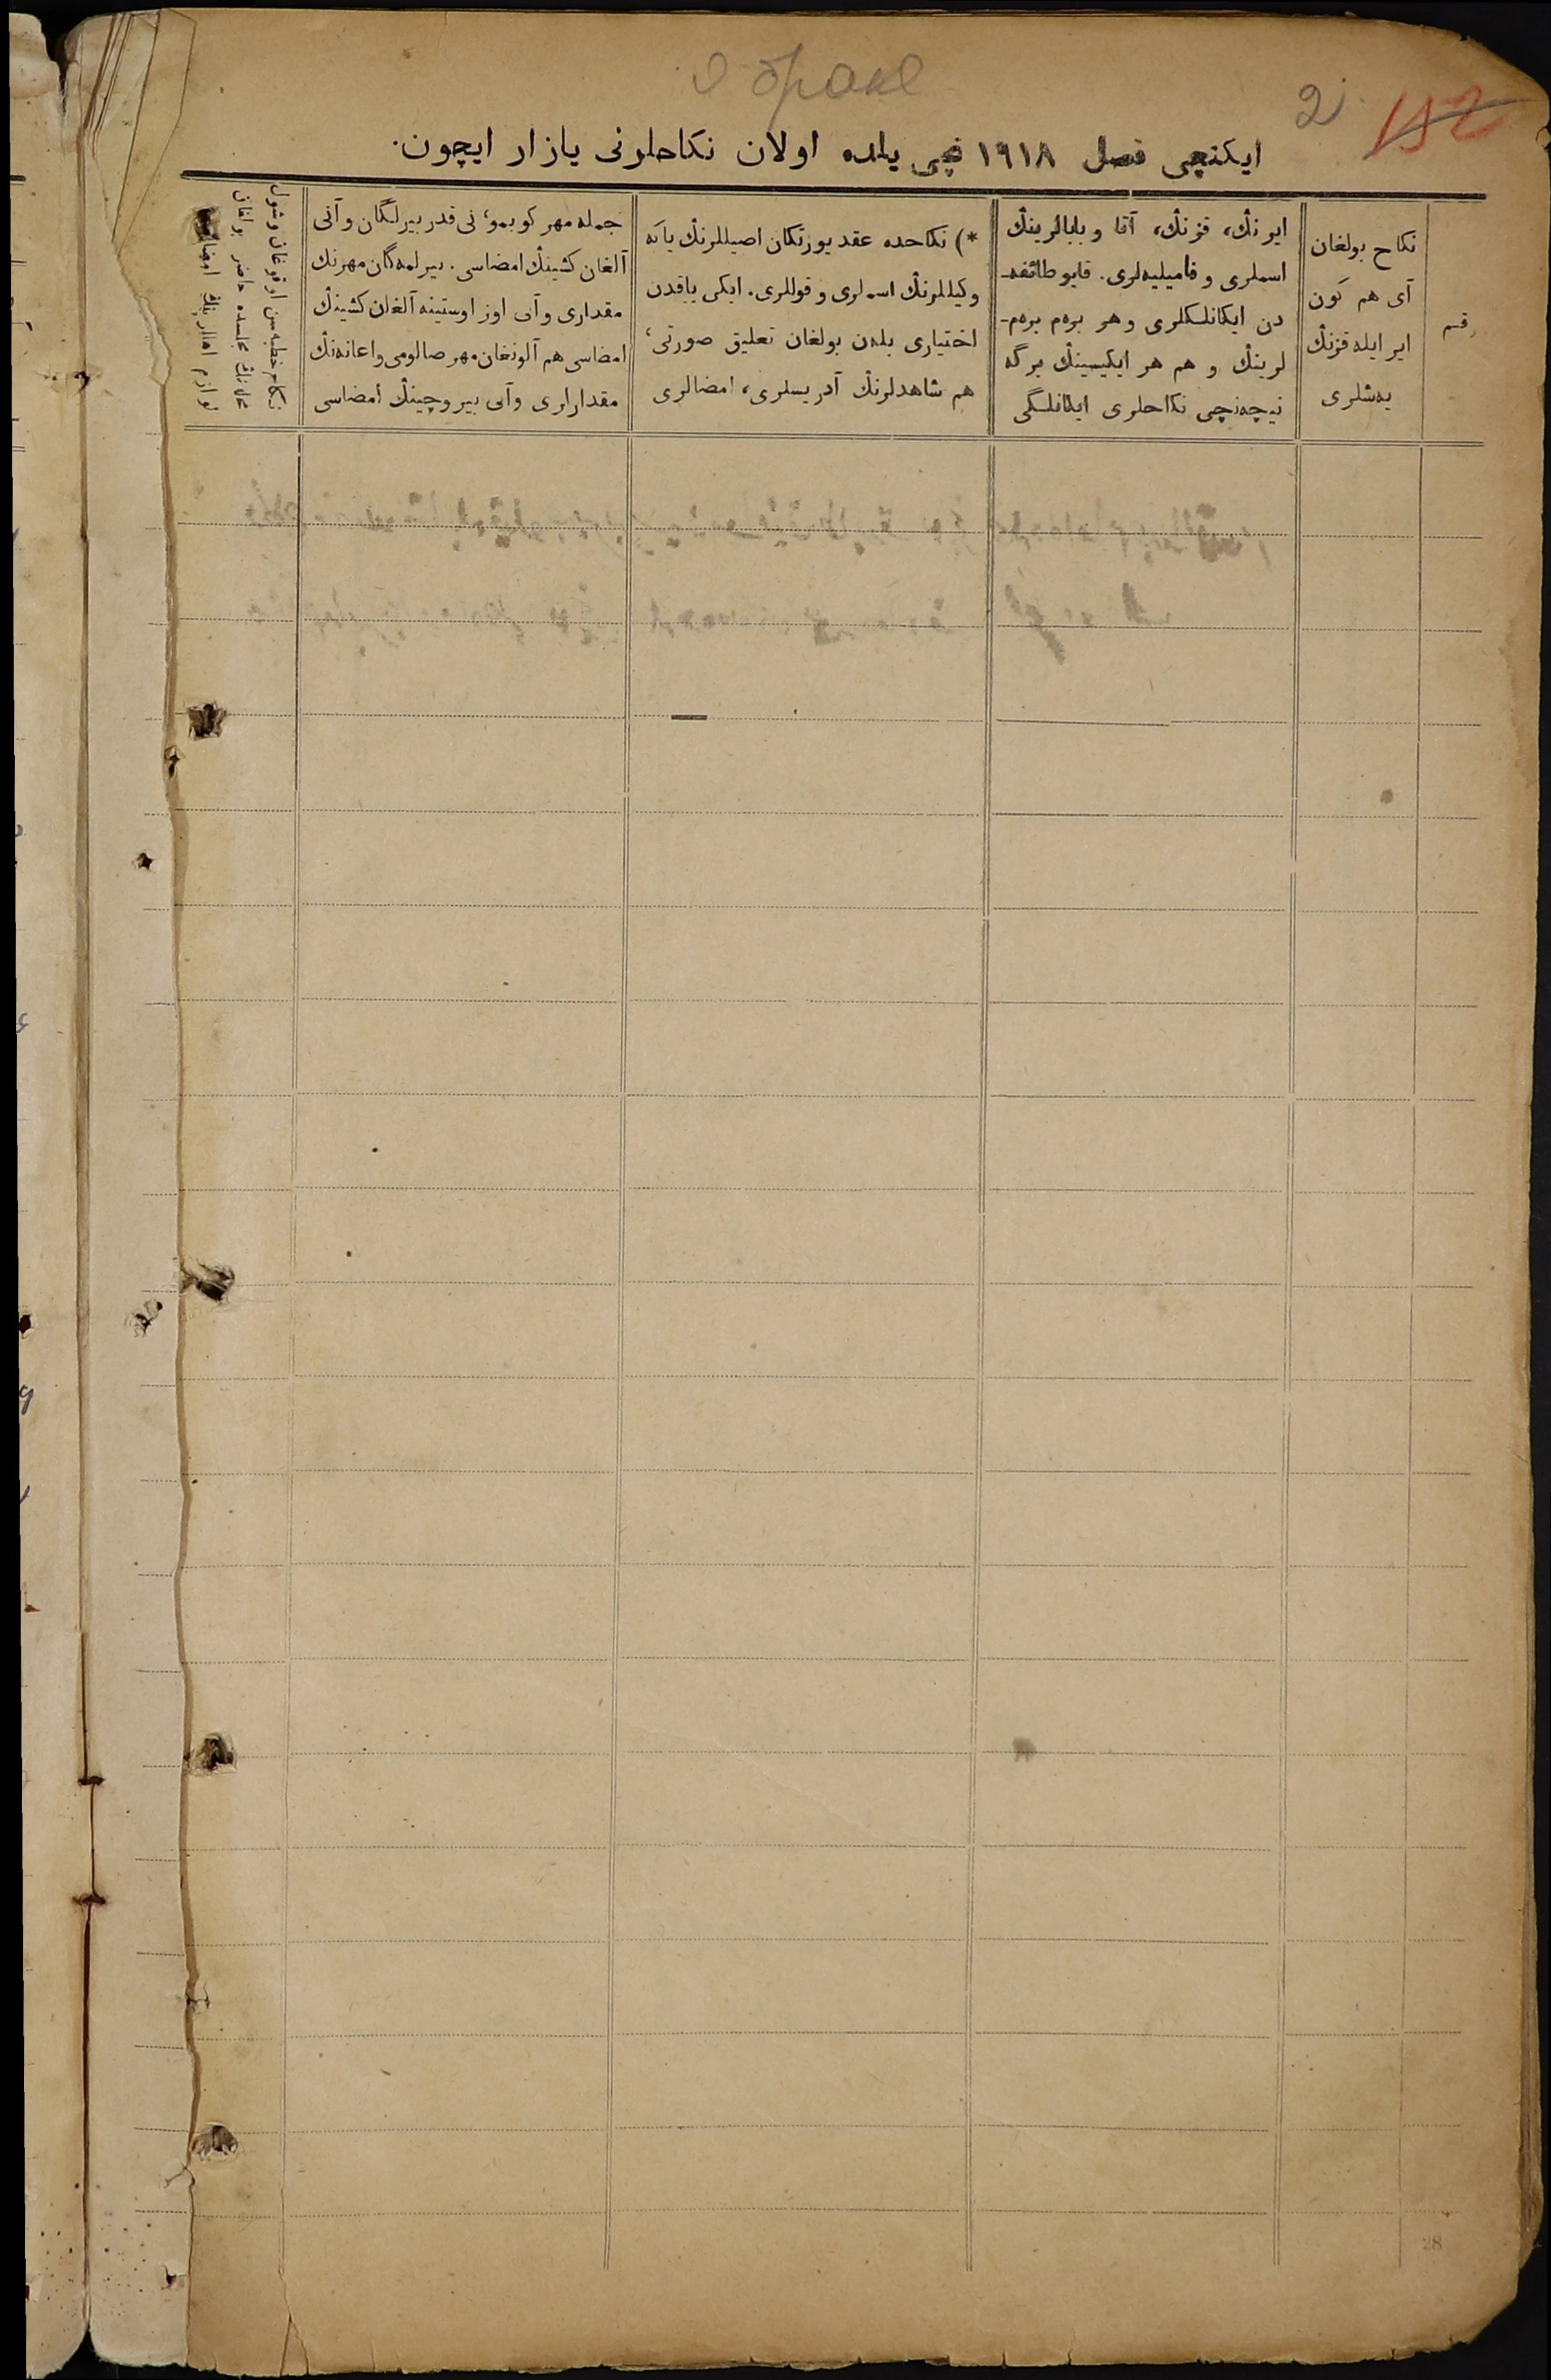 о браке
2
152
ایکنچی فصل ۱۹۱۸ نچی یلده اولان نکاحلرنی یازار ایچون.
رقم
نکاح بولغان
آی هم کون
ایر ایله قزنڭ
یه‌شلری
ایرنڭ، قزنڭ، آتا و بابالرینڭ
اسملری و فامیلیه‌لری. قایو طائفه-
دن ایکانلکلری و هر برەم برەم-
لرینڭ و هم هر ایکیسینڭ برگه
نیچه‌نچی نکاحلری ایکانلگی
*) نکاحده عقد یورتکان اصیللرنڭ یاکه
وکیللرنڭ اسملری و قوللری. ایکی یاقدن
اختیاری بلەن بولغان تعلیق صورتی؛
هم شاهدلرنڭ آدریسلری، امضالری
جمله مهر کوبمو، نی قدر بیرلگان و آنی
آلغان کشینڭ امضاسی. بیرلمەگان مهرنڭ
مقداری و آنی اوز اوستینه آلغان کشینڭ
امضاسی هم آلونغان مهر صالومی و اعانه‌نڭ
مقدارلری و آنی بیروچینڭ امضاسی
نکاح خطبه‌سن اوقوغان وشول
محل‌نڭ مجلسده حاضر بولغان
28